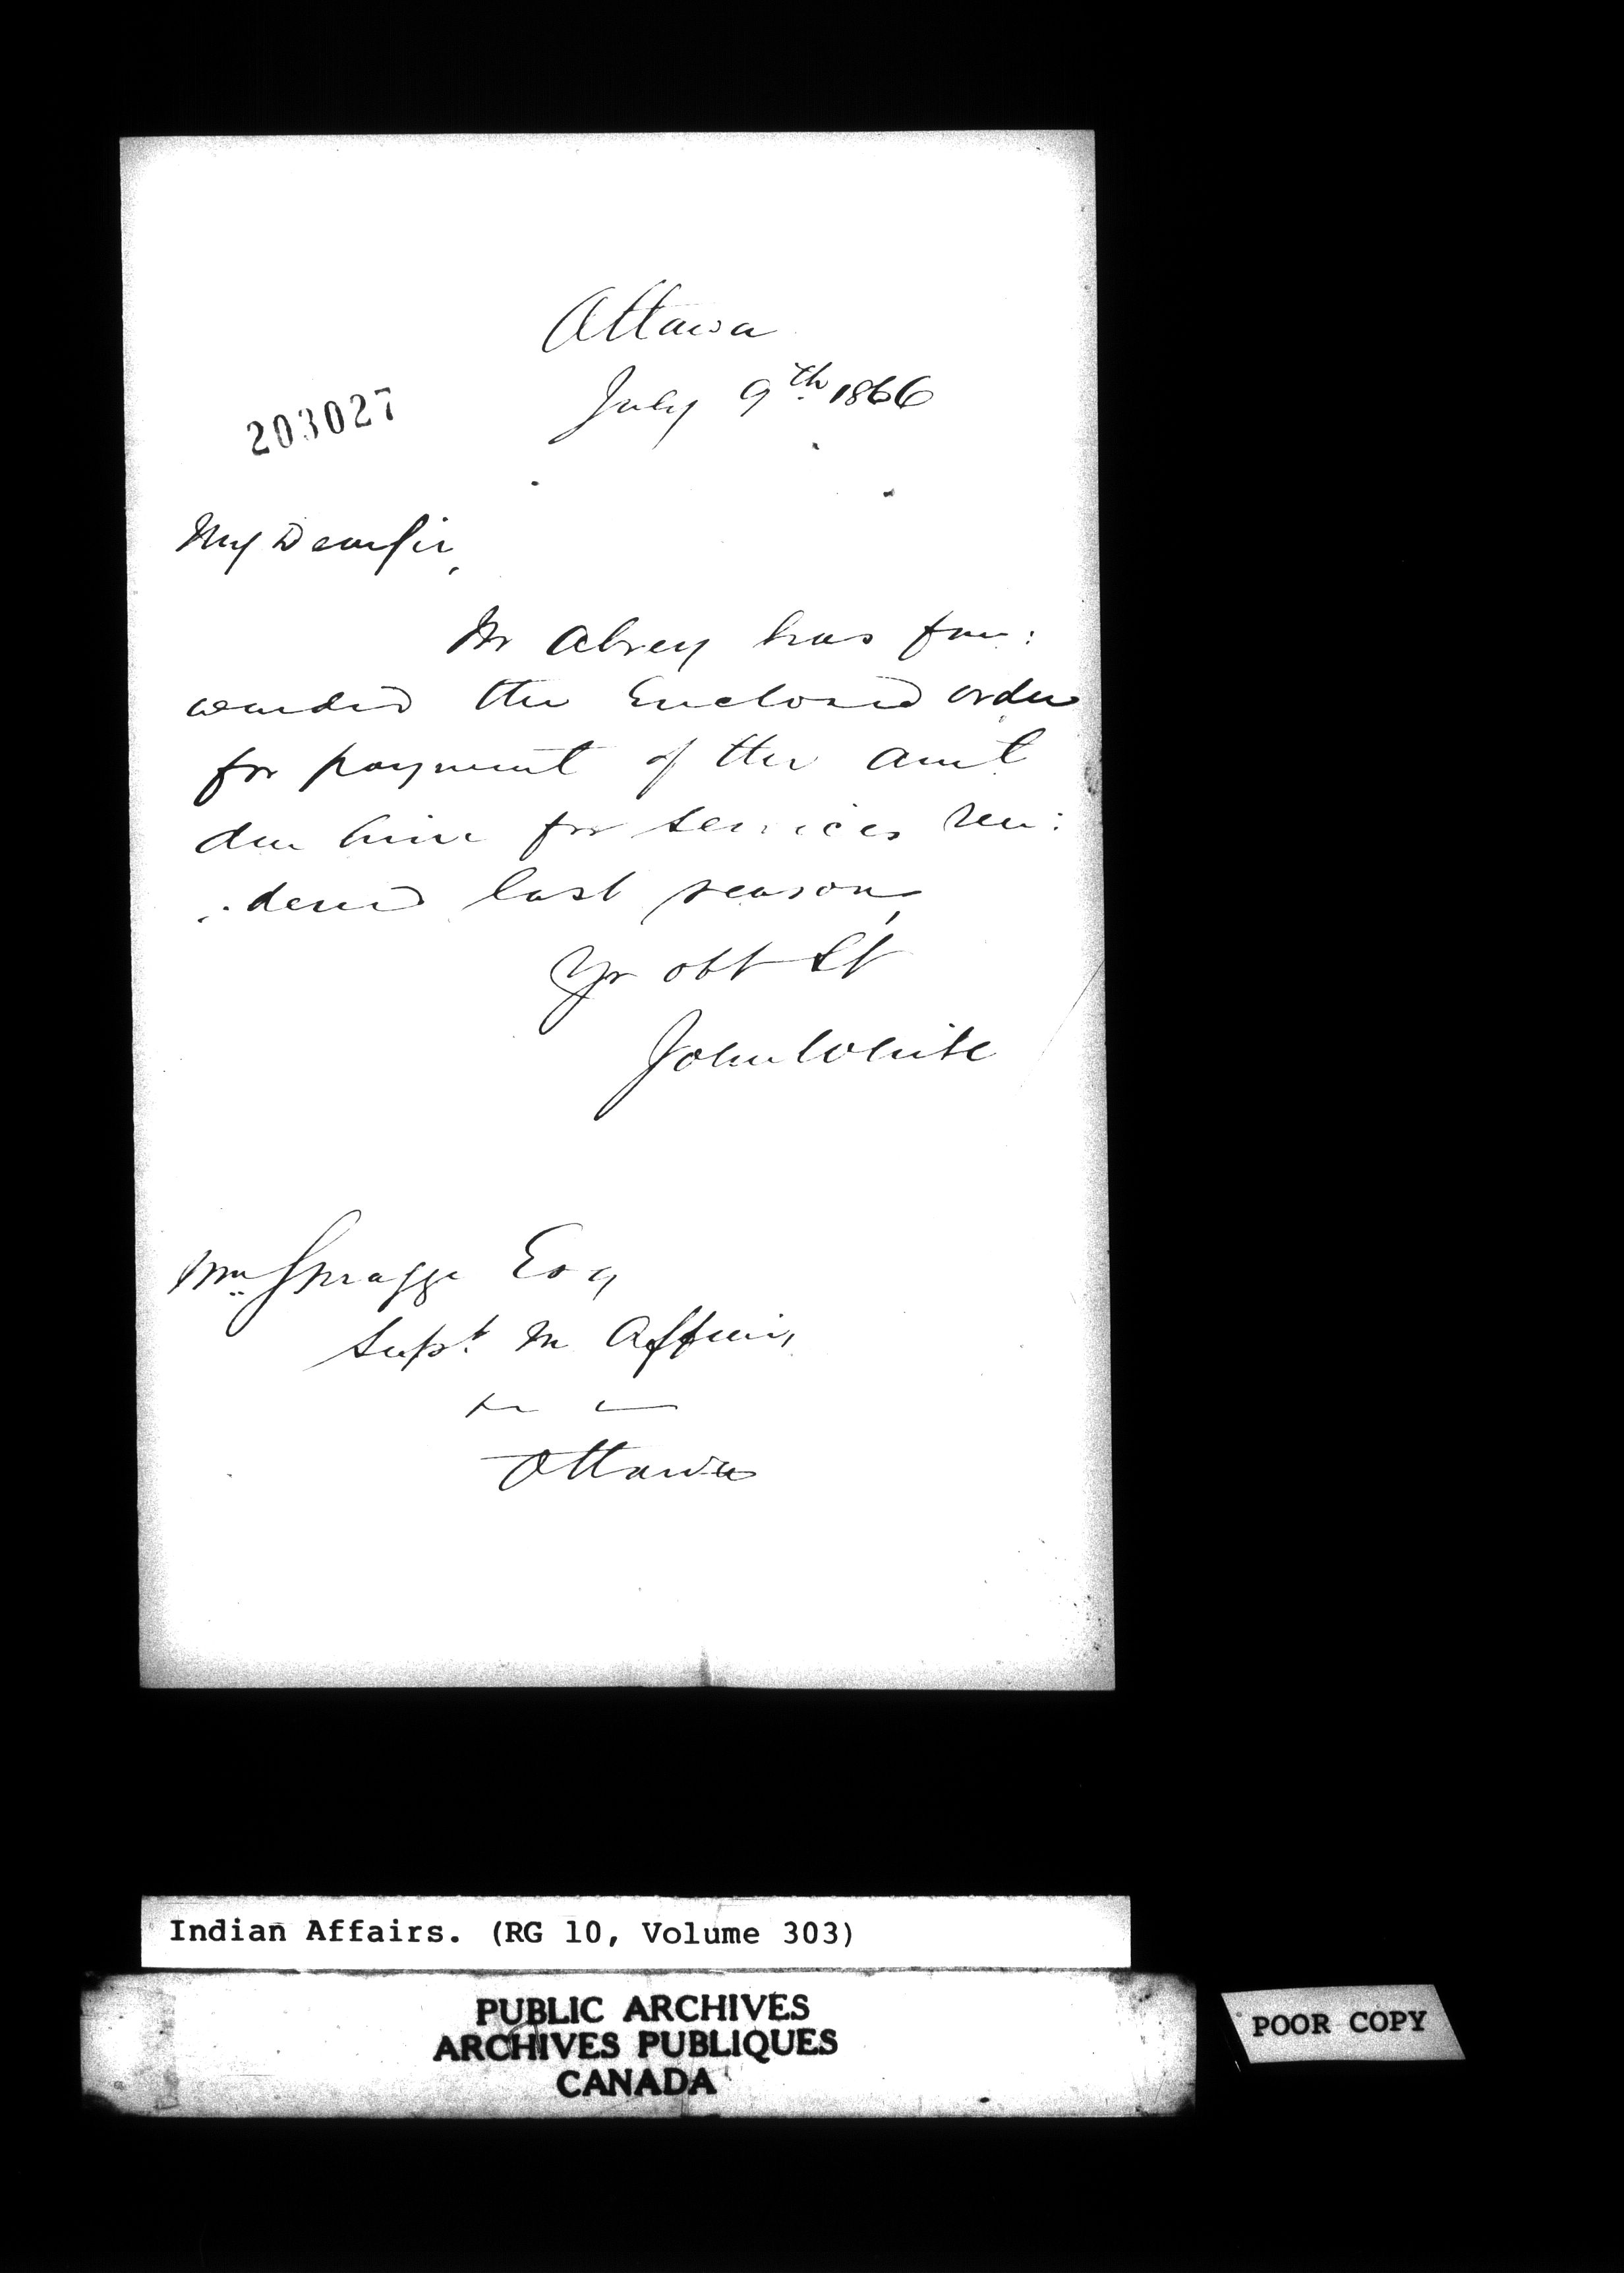 Ottawa
July 9th 1866
203027
My Dear Sir,
Mr Abrey has for:
warded the Enclosed order
for payment of the amt
due him for services ren:
:dered last season,
Yr obt St
John White
Wm Spragge Esq
Supt In Affairs
Ottawa
Indian Affairs. (RG 10, Volume 303)
PUBLIC ARCHIVES
ARCHIVES PUBLIQUES
CANADA
POOR COPY